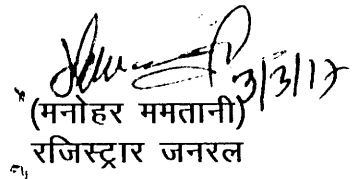 3/3/17
(मनोहर ममतानी)
रजिस्ट्रार जनरल